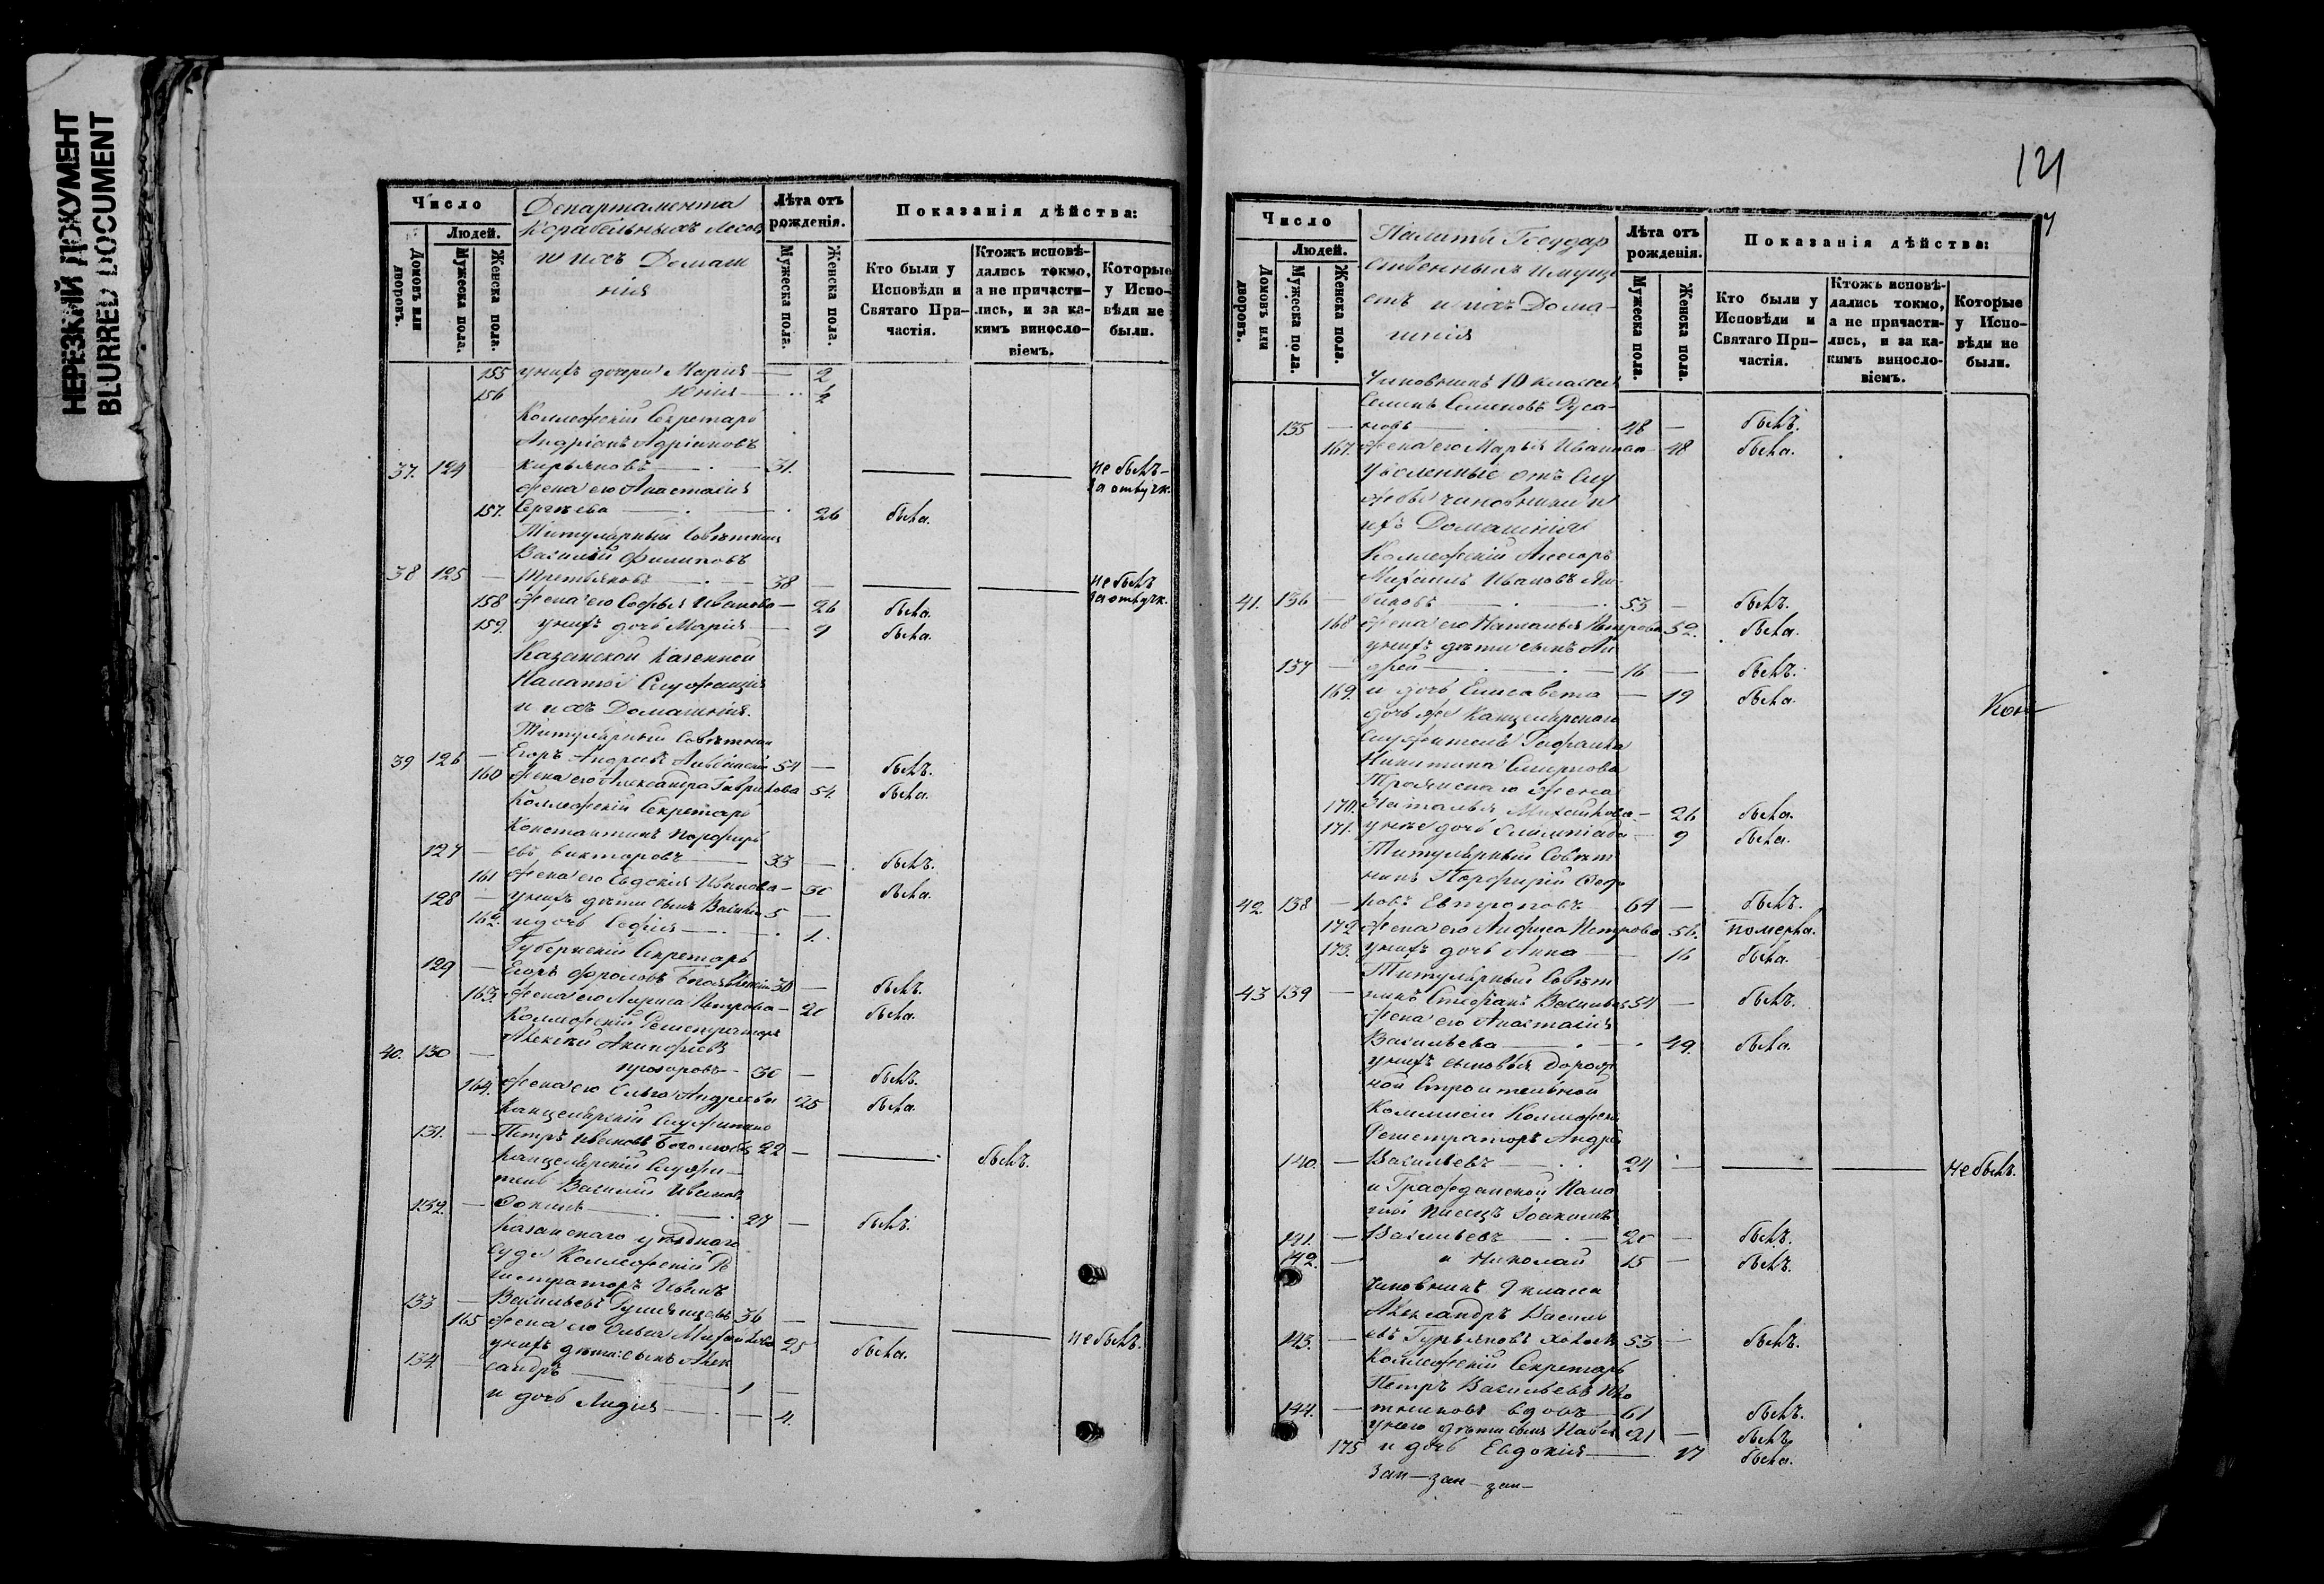 НЕРЕЗКИЙ ДОКУМЕНТ
BLURRED DOCUMENT
Число
Людей.
Домовъ или дворовъ.
Мужеска пола.
Женска пола.
Департамента
Корабельныхъ лесовъ
и ихъ Домаш
нія
Лѣта отъ рожденія.
Мужеска пола.
Женска пола.
Показанія дѣйства:
Кто были у Исповѣди и Святаго Причастія.
Ктожъ исповѣдались токмо, а не причастились, и за какимъ винословіемъ.
Которые у Исповѣди не были.
155 у нихъ дочери Марія — 2
156 Юнія — 1/2
Коллежскій Секретарь
Андріанъ Адріановъ
37. 124 Кирьяновъ — 31. не былъ за отлуч.
жена его Анастасія
157. Сергѣева — 26 была.
Титулярный Совѣтникъ
Василій Филиповъ
38 125 — Третьяковъ — 38 — не былъ за отлуч.
158 жена его Софья Иванова — 26 была.
159. у нихъ дочь Марія — 9 была.
Казанской Казенной
Палаты Служащія
и ихъ Домашнія.
Титулярный Совѣтникъ
39 126 — Егоръ Андреевъ 54 — былъ.
160 жена его Александра Гаврилова 54. была.
Коллежскій Секретарь
Константинъ Порфирь
127 — евъ Викторовъ — 33 — былъ.
161 жена его Евдокія Иванова — 30 была.
128 — у нихъ дѣти сынъ Василій 5 —
162. и дочь Софія — 1.
Губернскій Секретарь
129 — Егоръ Фроловъ Богоявленскій 30 — былъ.
163. жена его Лариса Петрова — 20 была.
Коллежскій Регистраторъ
Алексѣй Акинфіевъ
40. 130 — Прозоровъ — 30 — былъ.
164. жена его Ольга Андреева 25 была.
Канцелярскій Служитель
131. — Петръ Ивановъ Боголюбовъ 22 — былъ.
Канцелярскій Служи-
тель Василій Ивановъ
132. — Фокинъ — 27 — былъ.
Казанскаго уѣзднаго
Суда Коллежскій Ре
гистраторъ Иванъ
133 — Васильевъ Румянцевъ 36 — не былъ.
165 жена его Ольга Михайлова 25 была.
у нихъ дѣти: сынъ Алек
134. — сандръ — 1 —
и дочь Лидія — 4.
121
Число
Людей.
Домовъ или дворовъ.
Мужеска пола.
Женска пола.
Палаты Государ
ственныхъ Имущ
ествъ и ихъ Дома-
шнія
Лѣта отъ рожденія.
Мужеска пола.
Женска пола.
Показанія дѣйства:
Кто были у Исповѣди и Святаго Причастія.
Ктожъ исповѣдались токмо, а не причастились, и за какимъ винословіемъ.
Которые у Исповѣди не были.
Чиновникъ 10 класса
Семенъ Семеновъ Руса-
135 — новъ — 48 — былъ.
167. жена его Марья Иванова — 48 была.
Уволенные отъ Слу
жбы чиновники и
ихъ Домашнія
Коллежскій Ассесоръ
Михаилъ Ивановъ
41. 136 — 53 — былъ.
168 жена его Наталья Петрова 52. была.
у нихъ дѣти сынъ Ан
137 — дрей — 16 — былъ.
169. и дочь Елисавета — 19 была.
дочь же Канцелярскаго
Служителя
Никитина Смирнова
Троянскаго жена
170. Наталья Михайлова — 26 была.
171. у нее дочь Олимпіада — 9 была.
Титулярный Совѣт
никъ Порфирій Федо
42 138 — ровъ Евтроповъ 64 — былъ.
172 жена его Анфиса Петрова 56. померла.
173. у нихъ дочь Анна — 16 была.
Титулярный Совѣт
43 139 — никъ Стефанъ Васильевъ 54 — былъ.
жена его Анастасія
Васильева — 49. была.
у нихъ сыновья Дорож
ной Строительной
Коммисіи Коллежскій
Регистраторъ Андрей
140. — Васильевъ — 24 — не былъ.
и Гражданской Пала
ты писецъ Іоакимъ
141. — Васильевъ — 20 — былъ.
142. — и Николай 15 — былъ.
Чиновникъ 9 класса
Александръ Василь
143. — евъ Гурьяновъ холостъ 53 — былъ.
Коллежскій Секретарь
Петръ Васильевъ Пло
144. — тниковъ вдовъ — 61 былъ.
у него дѣти сынъ Павелъ 21 — былъ.
175 и дочь Евдокія — 17 была.
зап— зап— зап—